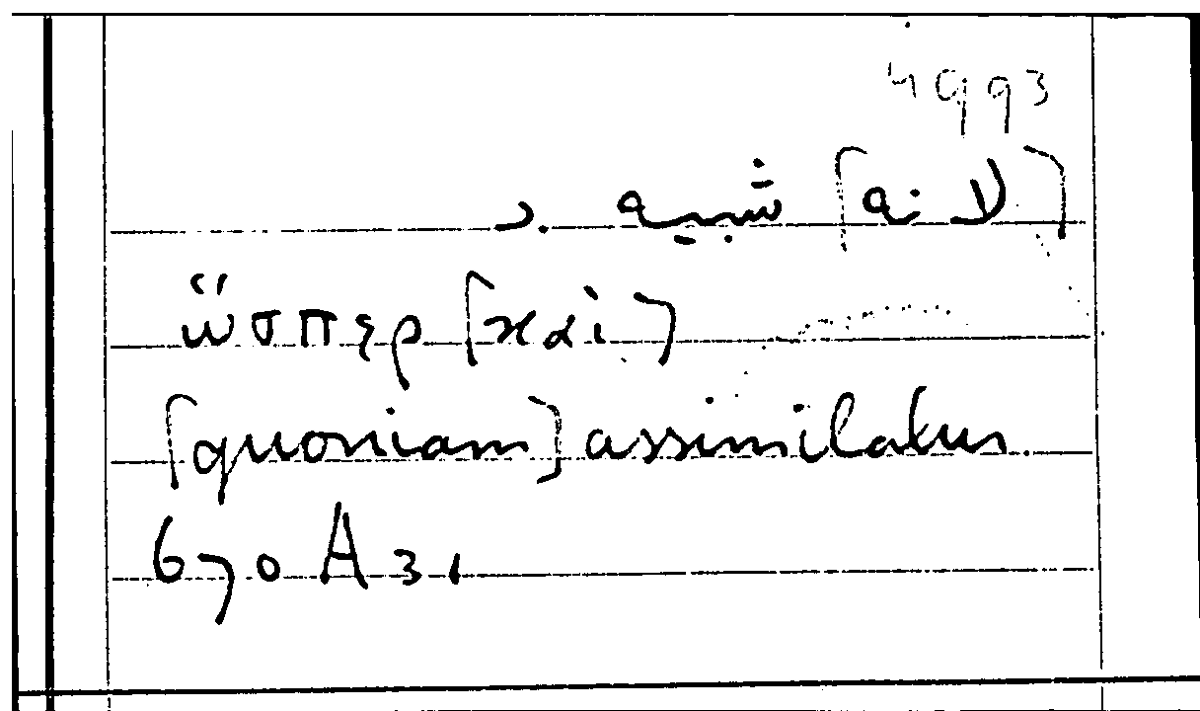 4993
[لانه] شبيه ب
ὥσπερ [καὶ]
[quoniam] assimilatur
670 A 31